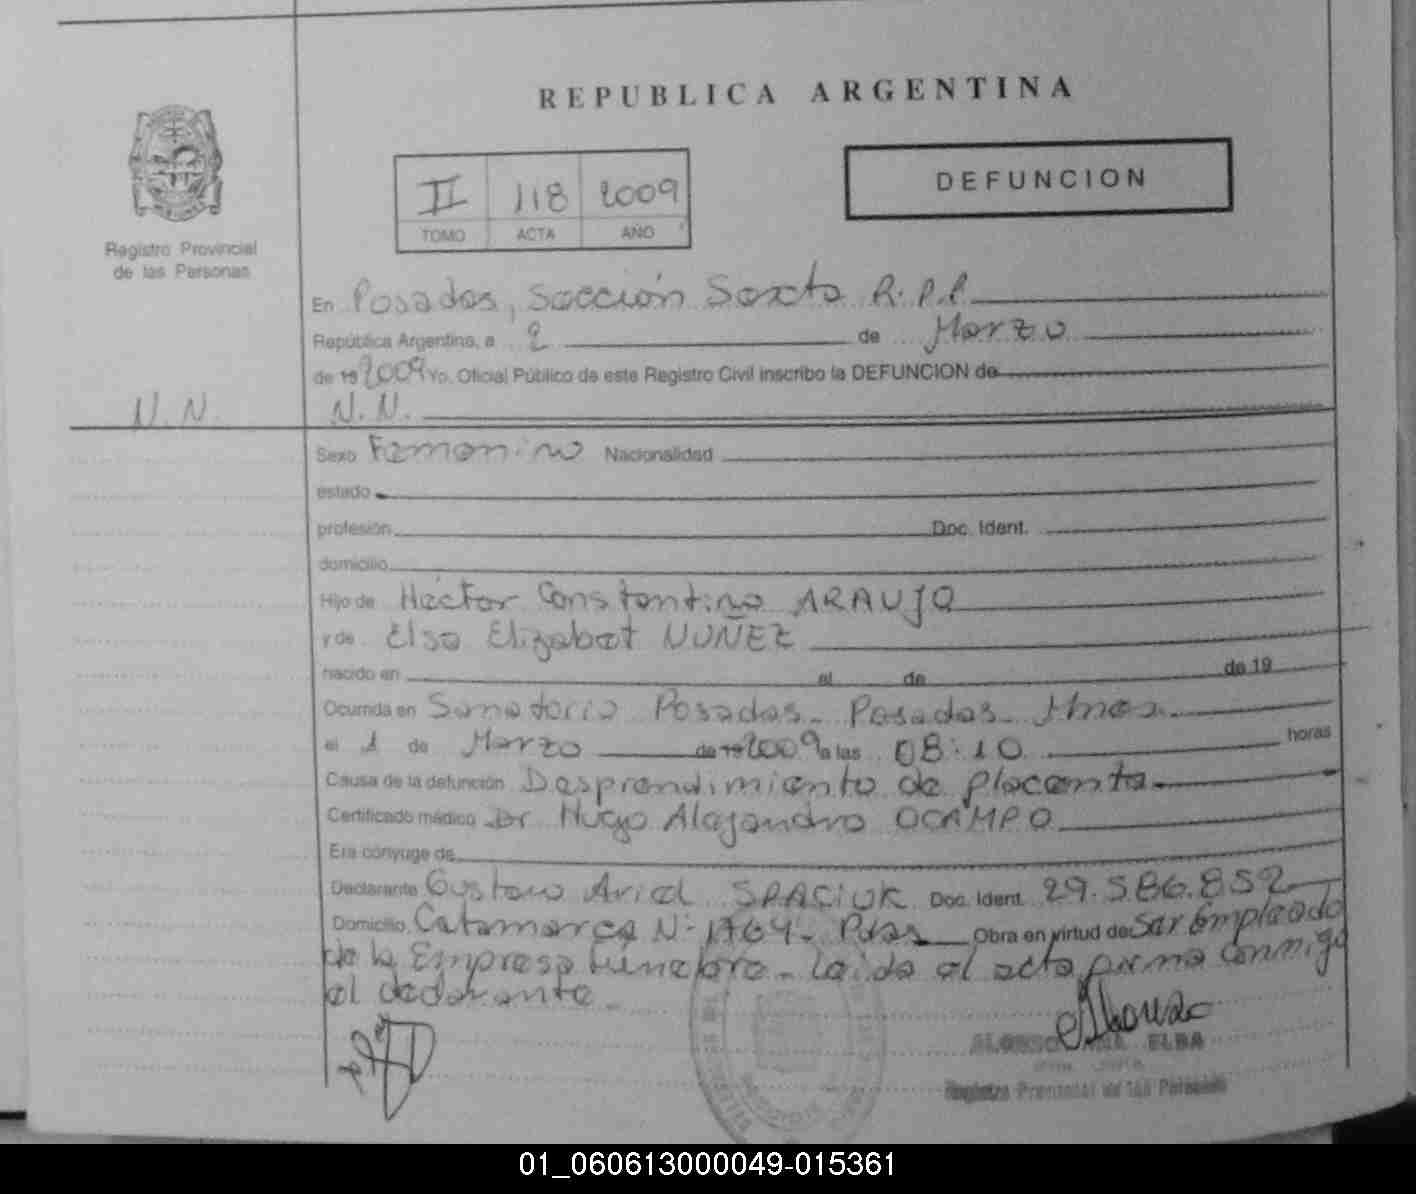 REPUBLICA ARGENTINA
Registro Provincial
de las Personas
II 118 2009
TOMO ACTA AÑO
DEFUNCION
En Posadas, Sección Sexta R.P.P.
República Argentina, a 2 de Marzo
de 19 2009 Yo. Oficial Público de este Registro Civil inscribo la DEFUNCION de
N.N. N.N.
Sexo Femenino Nacionalidad
estado
profesión Doc. Ident.
domicilio
Hijo de Héctor Constantino ARAUJO
y de Elsa Elizabet NUÑEZ
nacido en el de de 19
Ocurrida en Sanatorio Posadas- Posadas- Mnes.
el 1 de Marzo de 19 2009 a las 08:10 horas
Causa de la defunción Desprendimiento de placenta
Certificado médico Dr Hugo Alejandro OCAMPO
Era cónyuge de
Declarante Gustavo Ariel SPACIUK Doc. Ident. 29.586.852
Domicilio Catamarca N- 1764- Pdas Obra en virtud de Ser Empleado
de la Empresa Fúnebre- Leída el acta firma conmigo
el declarante
ALONSO ELBA
Registro Provincial de las Personas
01_060613000049-015361